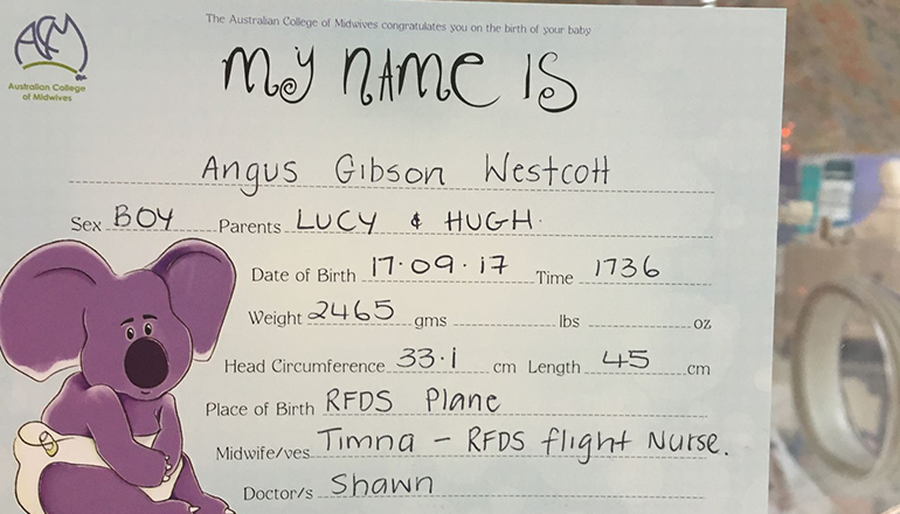 The Australian College of Midwives congratulates you on the birth of your baby
ACM
Australian College
of Midwives
My NAME IS
Angus Gibson Westcott
Sex BOY Parents LUCY & HUGH.
Date of Birth 17.09.17 Time 1736
Weight 2465 gms lbs oz
Head Circumference 33.1 cm Length 45 cm
Place of Birth RFDS Plane
Midwife/ves Timna - RFDS flight Nurse.
Doctor/s Shawn